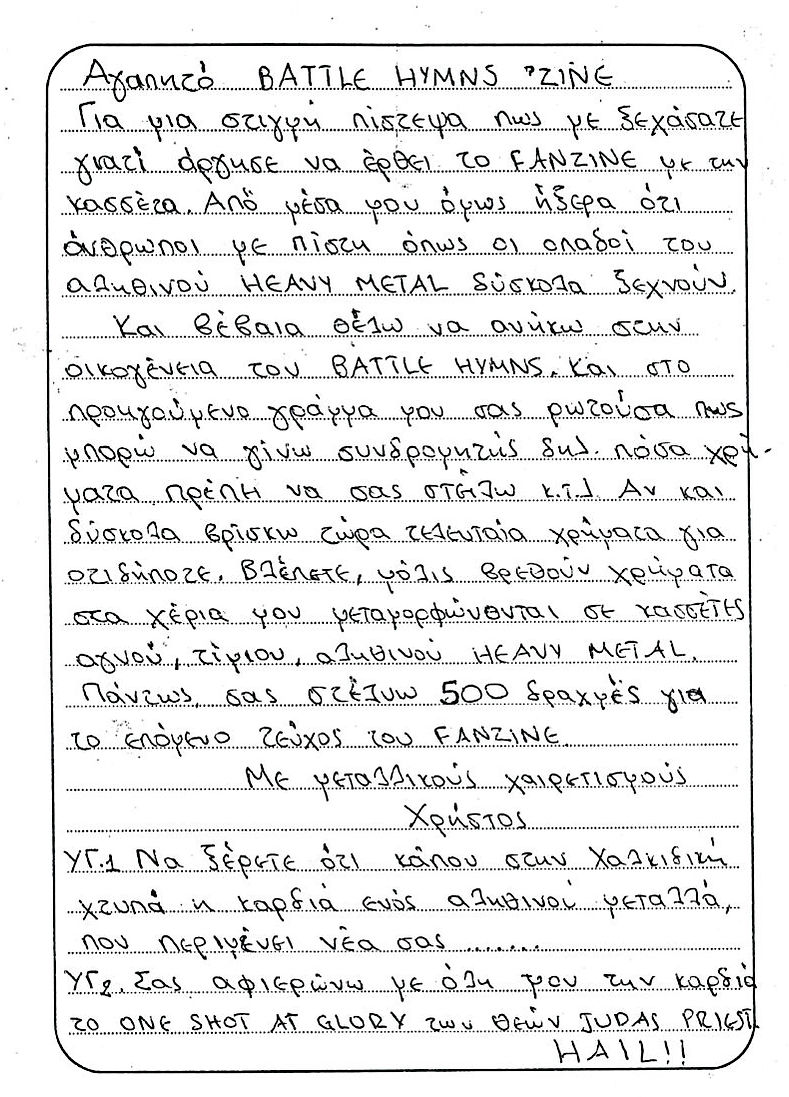 Αγαπητό BATTLE HYMNS 'ZINE
Για μια στιγμή πίστεψα πως με ξεχάσατε
γιατί άργησε να έρθει το FANZINE με την
κασσέτα. Από μέσα μου όμως ήξερα ότι
άνθρωποι με πίστη όπως οι οπαδοί του
αληθινού HEAVY METAL δύσκολα ξεχνούν.
Και βέβαια θέλω να ανήκω στην
οικογένεια του BATTLE HYMNS. Και στο
προηγούμενο γράμμα μου σας ρωτούσα πως
μπορώ να γίνω συνδρομητής δηλ. πόσα χρή-
ματα πρέπη να σας στείλω κ.τ.λ Αν και
δύσκολα βρίσκω τώρα τελευταία χρήματα για
οτιδήποτε. Βλέπετε, μόλις βρεθούν χρήματα
στα χέρια μου μεταμορφώνονται σε κασσέτες
αγνού, τίμιου, αληθινού HEAVY METAL.
Πάντως σας στέλνω 500 δραχμές για
το επόμενο τεύχος του FANZINE.
Με μεταλλικούς χαιρετισμούς
Χρήστος
ΥΓ.1 Να ξέρετε ότι κάπου στην Χαλκιδική
χτυπά η καρδιά ενός αληθινού μεταλλά,
που περιμένει νέα σας ........
ΥΓ2. Σας αφιερώνω με όλη μου την καρδιά
το ONE SHOT AT GLORY των θεών JUDAS PRIEST.
HAIL!!